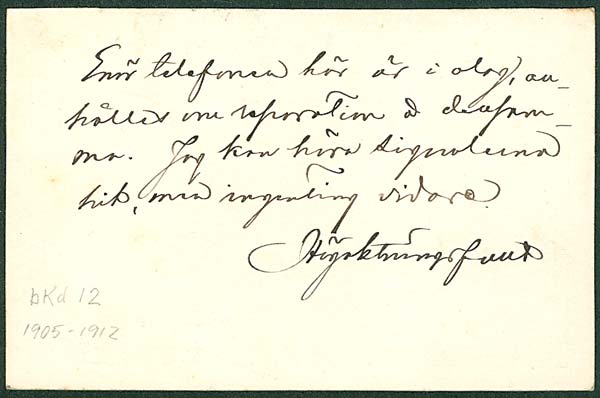 Enär telefonen här är i olag, an-
hålles om reparation å densam-
ma. Jag kan höra signalerna
hit, men ingenting vidare.
Högaktningsfullt
bKd 12
1905-1912